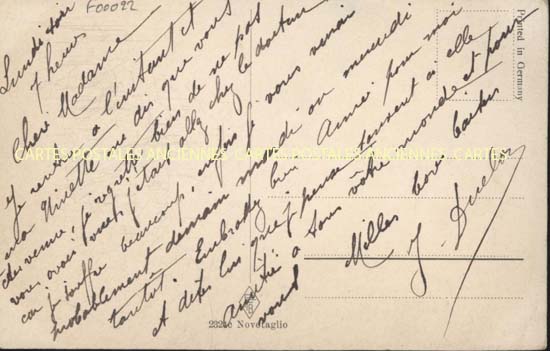 F00022
Lundi soir
7 heures
Chère Madame
Je rentre à l'instant et
ma Ginette me dit que vous
êtes venue, je regrette bien de ne pas
vous avoir vues, j'étais allé chez le docteur
car je souffre beaucoup, enfin je vous verrai
probablement demain mardi ou mercredi
tantôt. Embrassez bien Aimée pour moi
et dites lui que je pense souvent à elle
amitié à tous votre monde et pour
vous
Milles bons baisers
CARTES POSTALES ANCIENNES CARTES POSTALES ANCIENNES CARTES POSTALES ANCIENNES
Printed in Germany
Novotaglio